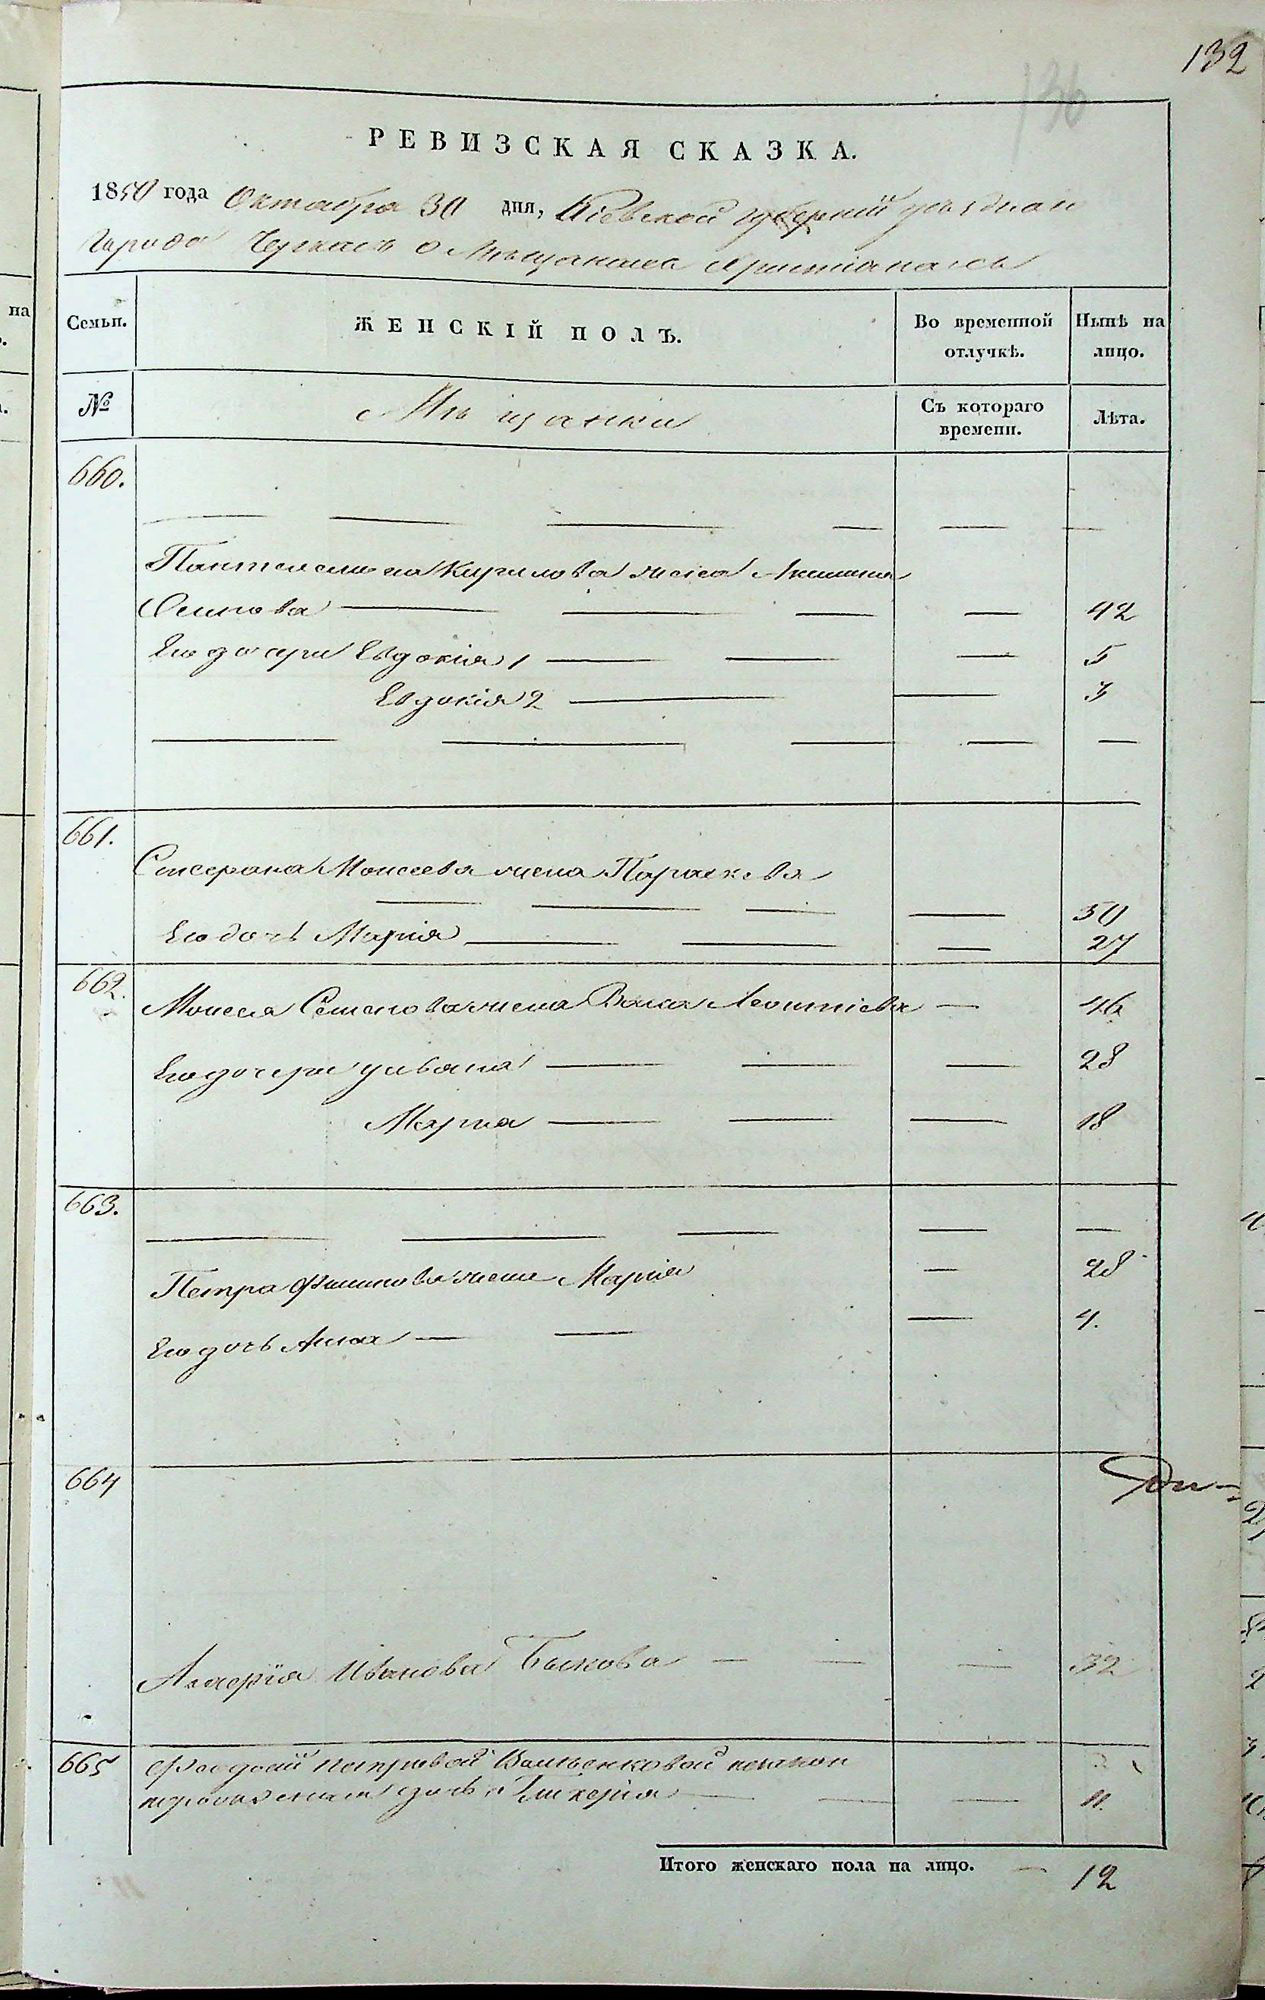 132
136
РЕВИЗСКАЯ СКАЗКА.
1850 года Октября 30 дня, Кіевской губерніи уѣзднаго
города Черкасъ о Мѣщанахъ Христіанахъ
Семьи. ЖЕНСКІЙ ПОЛЪ. Во временной отлучкѣ. Нынѣ на лицо.
№ Мѣщанки Съ котораго времени. Лѣта.
660.
Пантелеймона Кирилова жена Акилина
Осипова 42
Его дочери Евдокія 1 5
Евдокія 2 3
661.
Моисеева жена Параскева
50
Его дочь Марія 27
662. Моисея Семенова жена Васса Леонтіева 46
Его дочери Ульяна 28
Марина 18
663.
Петра Филипова жена Марія 28
Его дочь Анна 4.
664
Иванова Быкова 32
665 Феодосій Петровой
дочь Гликерія 11.
Итого женскаго пола на лицо. 12